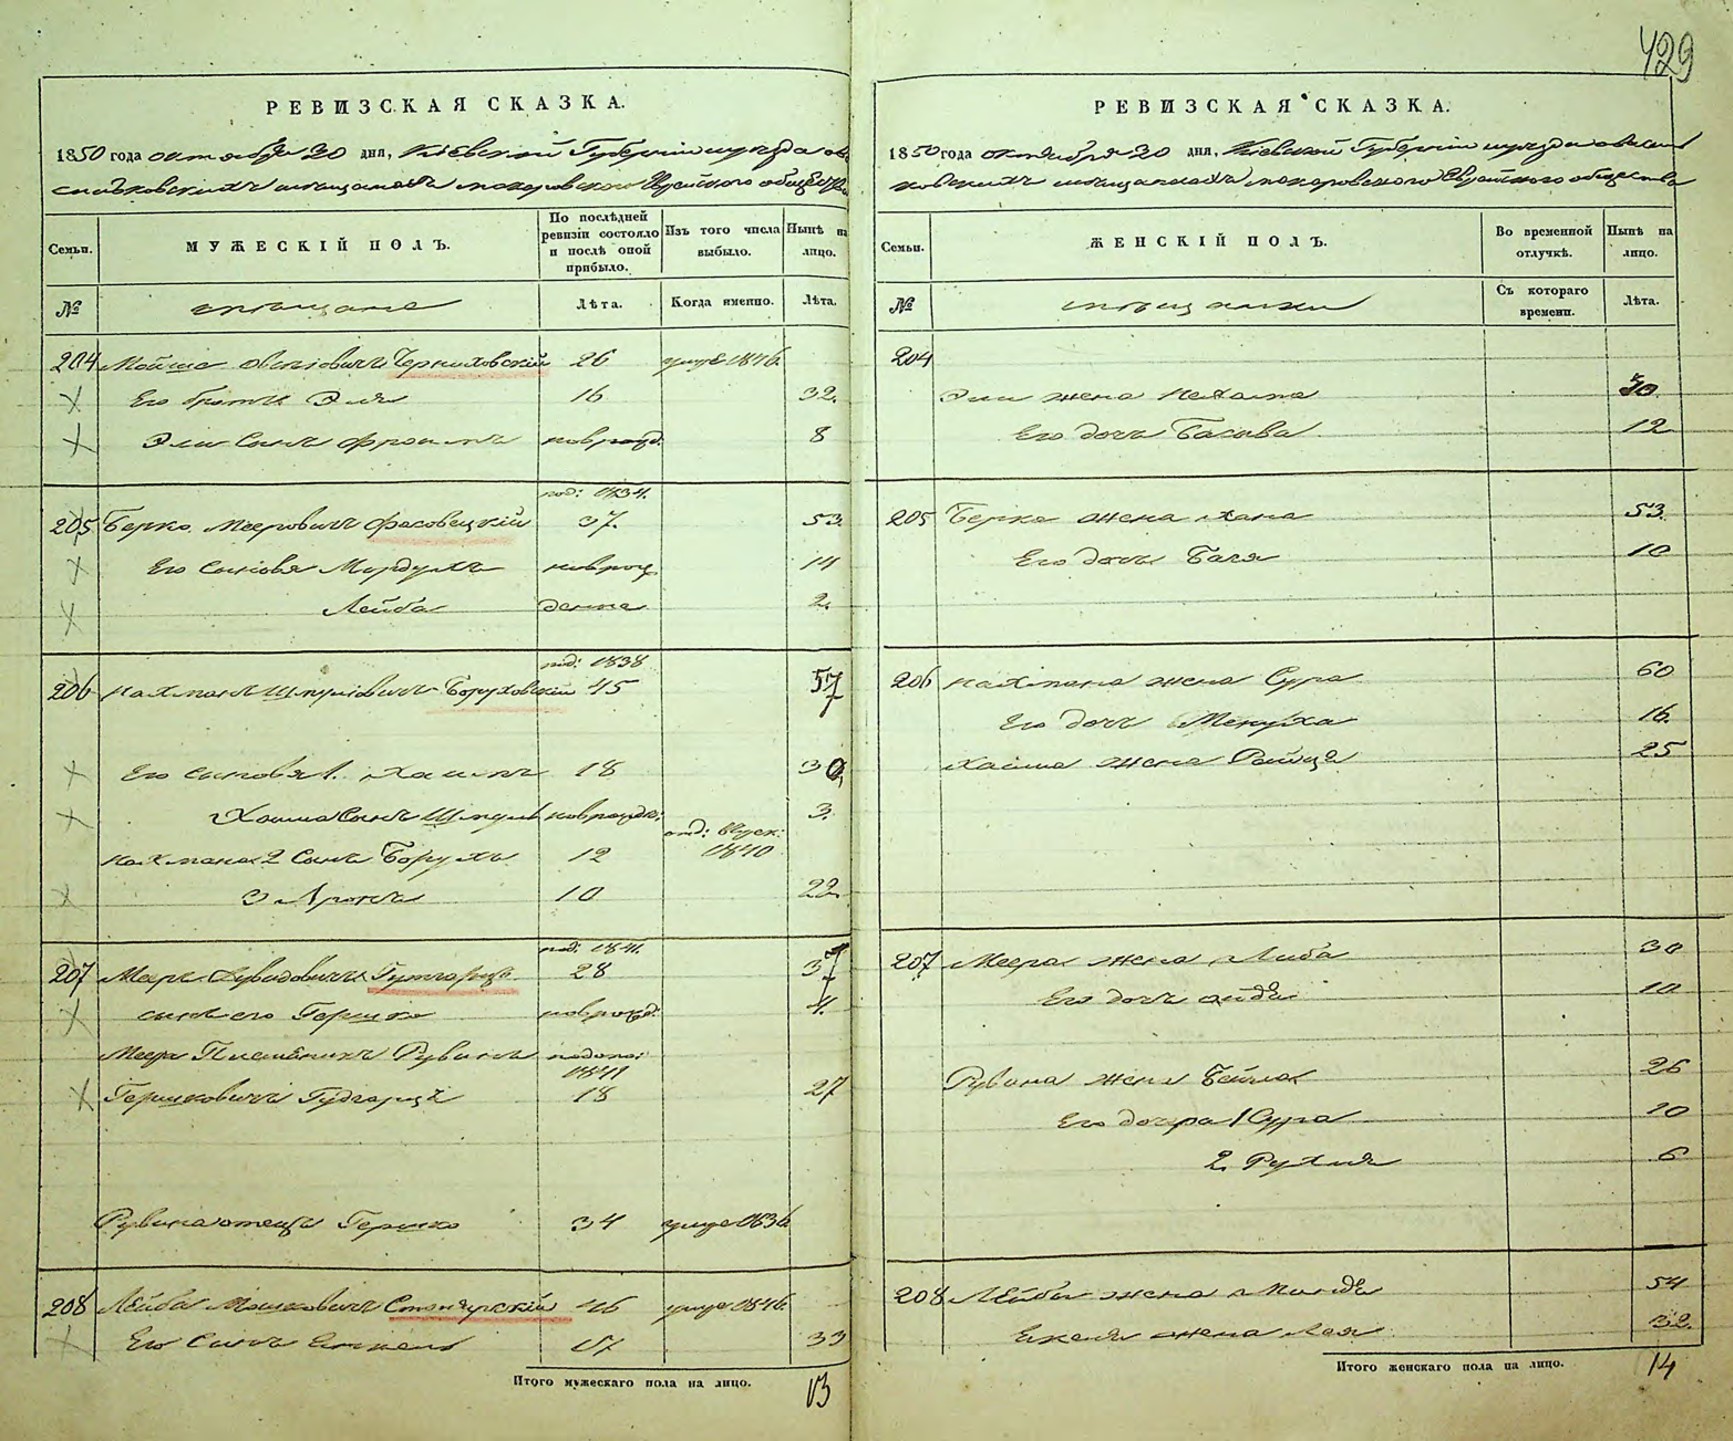 429
РЕВИЗСКАЯ СКАЗКА.
1850 года октября 20 дня, Кіевской Губерніи уезда
мещанахъ макаровского Еврейского общества
Семьи.
МУЖЕСКІЙ ПОЛЪ.
По послѣдней ревизіи состояло и послѣ оной прибыло.
Изъ того числа выбыло.
Нынѣ на лицо.
№
мещане
Лѣта.
Когда именно.
Лѣта.
204 Мойше Черниховскій 26 умре 1846.
Его братъ Эля 16 32.
Эли Сынъ Фроимъ новорожд. 8
205 Берко Мееровичъ Фасовецкій 37. 53.
Его сыновя Мордухъ новорож
Лейба денные 2.
под: 1838
206 Нахманъ Шмулiовичъ Боруховскій 45 57
Его сыновя 1. Хаимъ 18 30
Хаима Сынъ Шмуль новорожд: 3.
Нахмана 2 Сынъ Борухъ 12 1840
3 Аронъ 10 22.
под: 1841.
207 Мееръ Дувидовичъ 28 37
сынъ его Гершко новорожд. 4.
Меера Племѣникъ Рувинъ
Гершковичъ 18 27
Рувина отецъ Гершко 34 умре 1836
208 Лейба Мошковичъ 46 умре 1846.
Его Сынъ 17 33
Итого мужескаго пола на лицо. 13
РЕВИЗСКАЯ СКАЗКА.
1850 года октября 20 дня, Кіевской Губерніи уезда
мещанахъ макаровского Еврейского общества
Семьи.
ЖЕНСКІЙ ПОЛЪ.
Во временной отлучкѣ.
Нынѣ на лицо.
№
мещанки
Съ котораго времени.
Лѣта.
204
Эли жена Нехама 30.
Его дочь Басива 12
205 Берка жена Хана 53.
Его дочь Бася 10
206 Нахмана жена Сура 60
Его дочь Менуха 16.
Хаима жена Ройза 25
207 Меера жена Либа 30
Его дочь 10
Рувина жена Бейла 26
Его дочера 1 Сура 10
2. Рухля 6
208 Лейбы жена 54
жена Лея 32.
Итого женскаго пола на лицо. 14